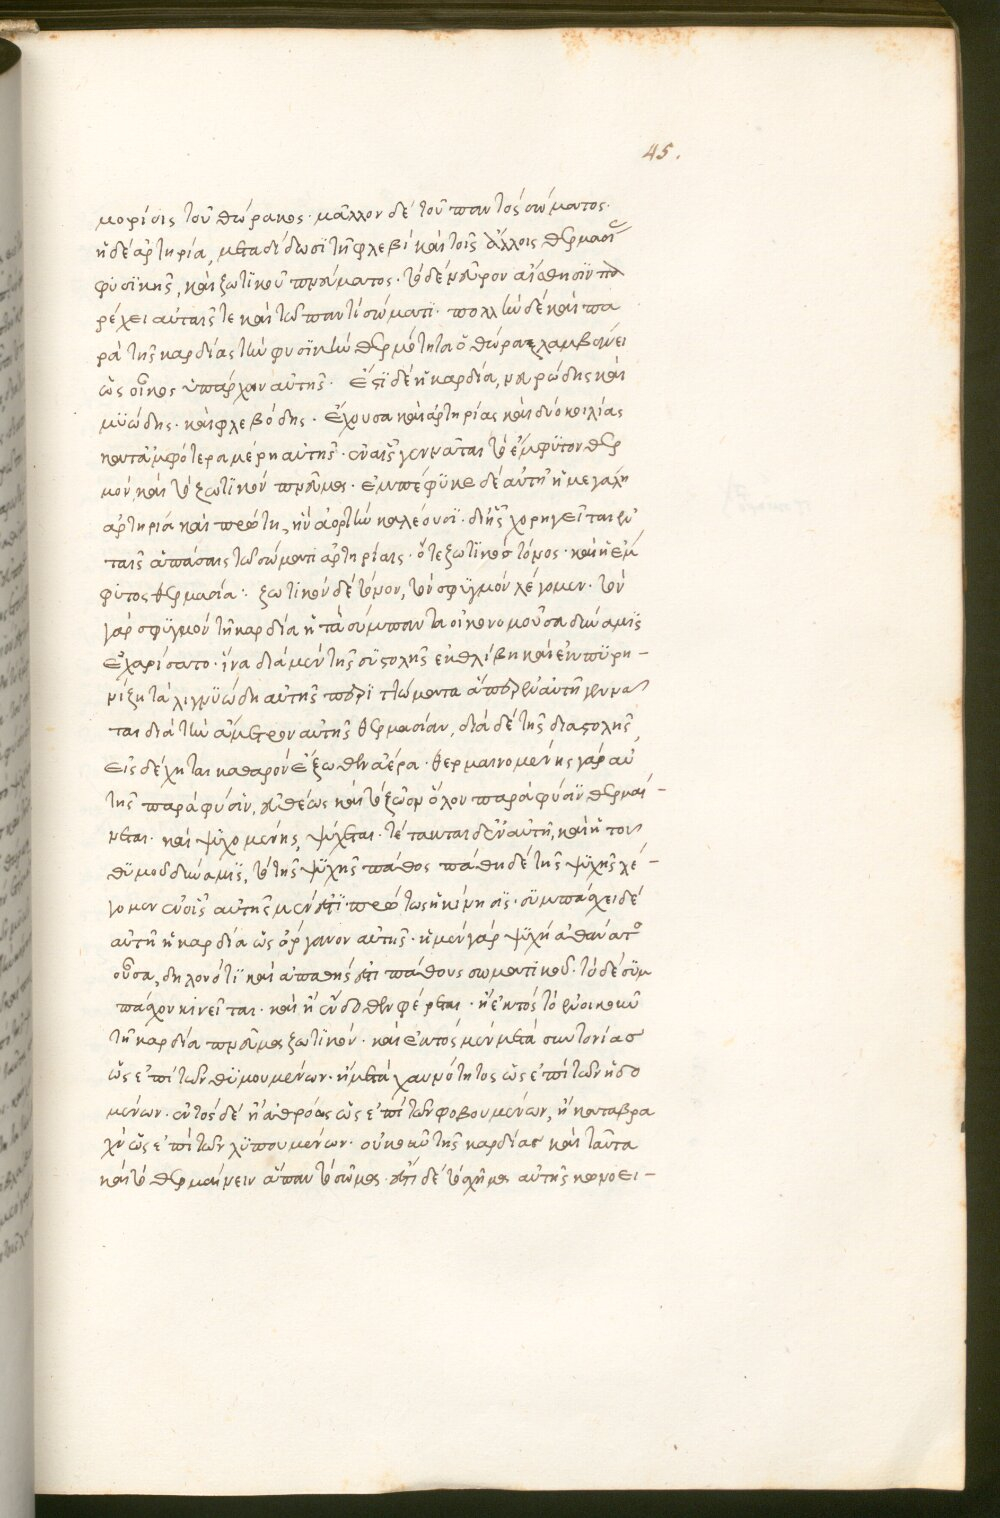 45.
μορίοις τοῦ θώρακος· μᾶλλον δὲ τοῦ παντὸς σώματος·
ἡ δὲ ἀρτηρία, μεταδίδωσι τῇ φλεβὶ καὶ τοῖς ἄλλοις θερμασί
φυσικῆς, καὶ ζωτικοῦ πνεύματος· τὸ δὲ νεῦρον αἴσθησιν πα
ρέχει αὐταῖς τε καὶ τῶ παντὶ σώματι· πολλὴν δὲ καὶ πα
ρὰ τῆς καρδίας τὴν φυσικὴν θερμότητα ὁ θώραξ λαμβάνει
ὡς οἶκος ὑπάρχων αὐτῆς· ἔστι δὲ ἡ καρδία, νευρώδης καὶ
μυώδης· καὶ φλεβώδης· ἔχουσα καὶ ἀρτηρίας καὶ δύο κοιλίας
κατ' ἀμφότερα μέρη αὐτῆς· ἐν αἷς γεννᾶται τὸ ἔμφυτον θερ
μὸν, καὶ τὸ ζωτικὸν πνεῦμα· ἐμπέφυκε δὲ αὐτῇ ἡ μεγάλη
ἀρτηρία καὶ πρώτη, ἣν ἀορτὴν καλέουσι· δι' ἧς χορηγεῖται ἐν
ταῖς ἁπάσαις τῶ σώματι ἀρτηρίαις· ὅ τε ζωτικὸς τόνος· καὶ ἡ ἔμ
φυτος θερμασία· ζωτικὸν δὲ τόνον, τὸν σφυγμὸν λέγομεν· τὸν
γὰρ σφυγμὸν τῇ καρδία ἡ τὰ σύμπαντα οἰκονομοῦσα δύναμις
ἐχαρίσατο· ἵνα διὰ μὲν τῆς συστολῆς ἐκθλίβη καὶ ἐκπυρη-
νίζη τὰ λιγνυώδη αὐτῆς περιττώματα ἅπερ ἐν αὐτῇ γεννᾶ
ται διὰ τὴν ἄμετρον αὐτῆς θερμασίαν, διὰ δὲ τῆς διαστολῆς
εἰσδέχηται καθαρὸν ἔξωθεν ἀέρα· θερμαινομένης γὰρ αὐ
τῆς παρὰ φύσιν, εὐθέως καὶ τὸ ζῶον ὅλον παρὰ φύσιν θερμαί-
νεται· καὶ ψυχομένης, ψύχεται· τέτακται δ' ἐν αὐτῇ, καὶ ἡ τοῦ
θυμοῦ δύναμις, τὸ τῆς ψυχῆς πάθος πάθη δὲ τῆς ψυχῆς λέ-
γομεν ἐν οἷς αὐτῆς μέν ἐστι πρώτως ἡ κίνησις· συμπάσχει δὲ
αὐτῇ ἡ καρδία ὡς ὄργανον αὐτῆς· ἡ μὲν γὰρ ψυχὴ ἀθάνατος
οὖσα, δηλονότι καὶ ἀπαθής ἐστι πάθους σωματικοῦ· τὸ δὲ συμ
πάσχον κινεῖται· καὶ ἢ ἔνδοθεν φέρεται· ἢ ἐκτὸς τὸ ἐνοικοῦν
τῇ καρδία πνεῦμα ζωτικόν· καὶ ἐκτὸς μὲν μετὰ συντονίας
ὡς ἐπὶ τῶν θυμουμένων· ἢ μετὰ χαυνότητος ὡς ἐπὶ τῶν ἡδο
μένων· ἐντὸς δὲ ἢ ἀθρόως ὡς ἐπὶ τῶν φοβουμένων, ἢ καταβρα
χὺ ὡς ἐπὶ τῶν λυπουμένων· οὐκοῦν τῆς καρδίας καὶ ταῦτα
καὶ τὸ θερμαίνειν ἅπαν τὸ σῶμα· ἔστι δὲ τὸ σχῆμα αὐτῆς κωνοει-